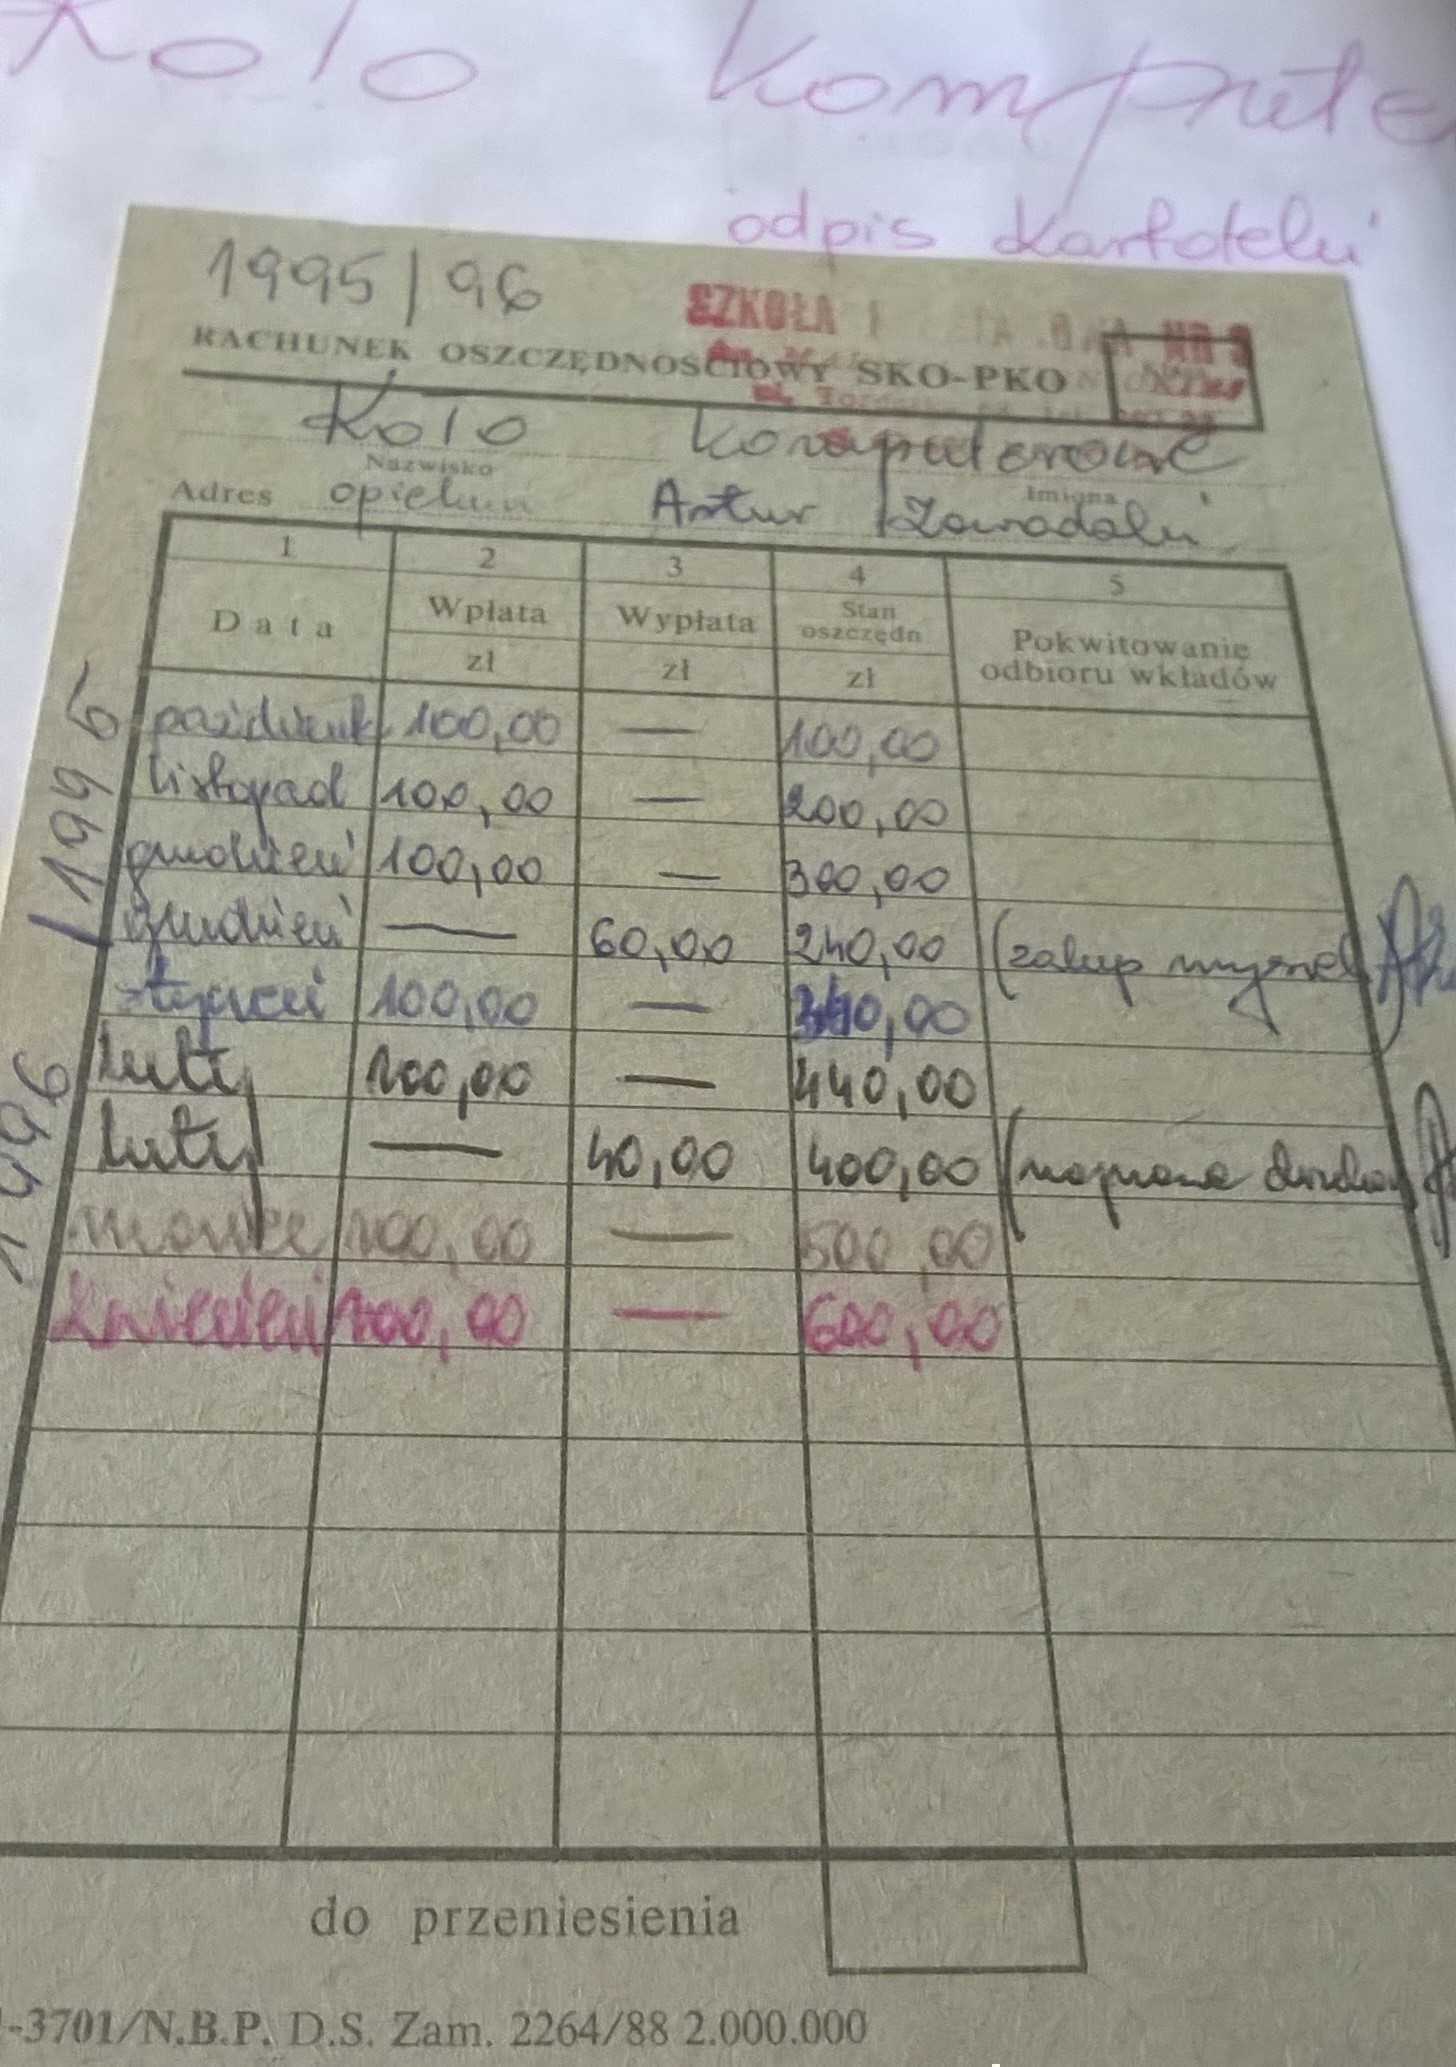 Koło Kompute
odpis kartoteki
1995/96
SZKOŁA NR 3
RACHUNEK OSZCZĘDNOŚCIOWY SKO-PKO
Koło Komputerowe
Nazwisko Imiona
Adres opiekun Artur
1 2 3 4 5
Data Wpłata Wypłata Stan oszczędn Pokwitowanie odbioru wkładów
zł zł zł
1995
październik 100,00 — 100,00
listopad 100,00 — 200,00
grudzień 100,00 — 300,00
grudzień — 60,00 240,00 (zakup
1996
styczeń 100,00 — 340,00
luty 100,00 — 440,00
luty — 40,00 400,00 (naprawa
marzec 100,00 — 500,00
kwiecień 100,00 — 600,00
do przeniesienia
-3701/N.B.P. D.S. Zam. 2264/88 2.000.000